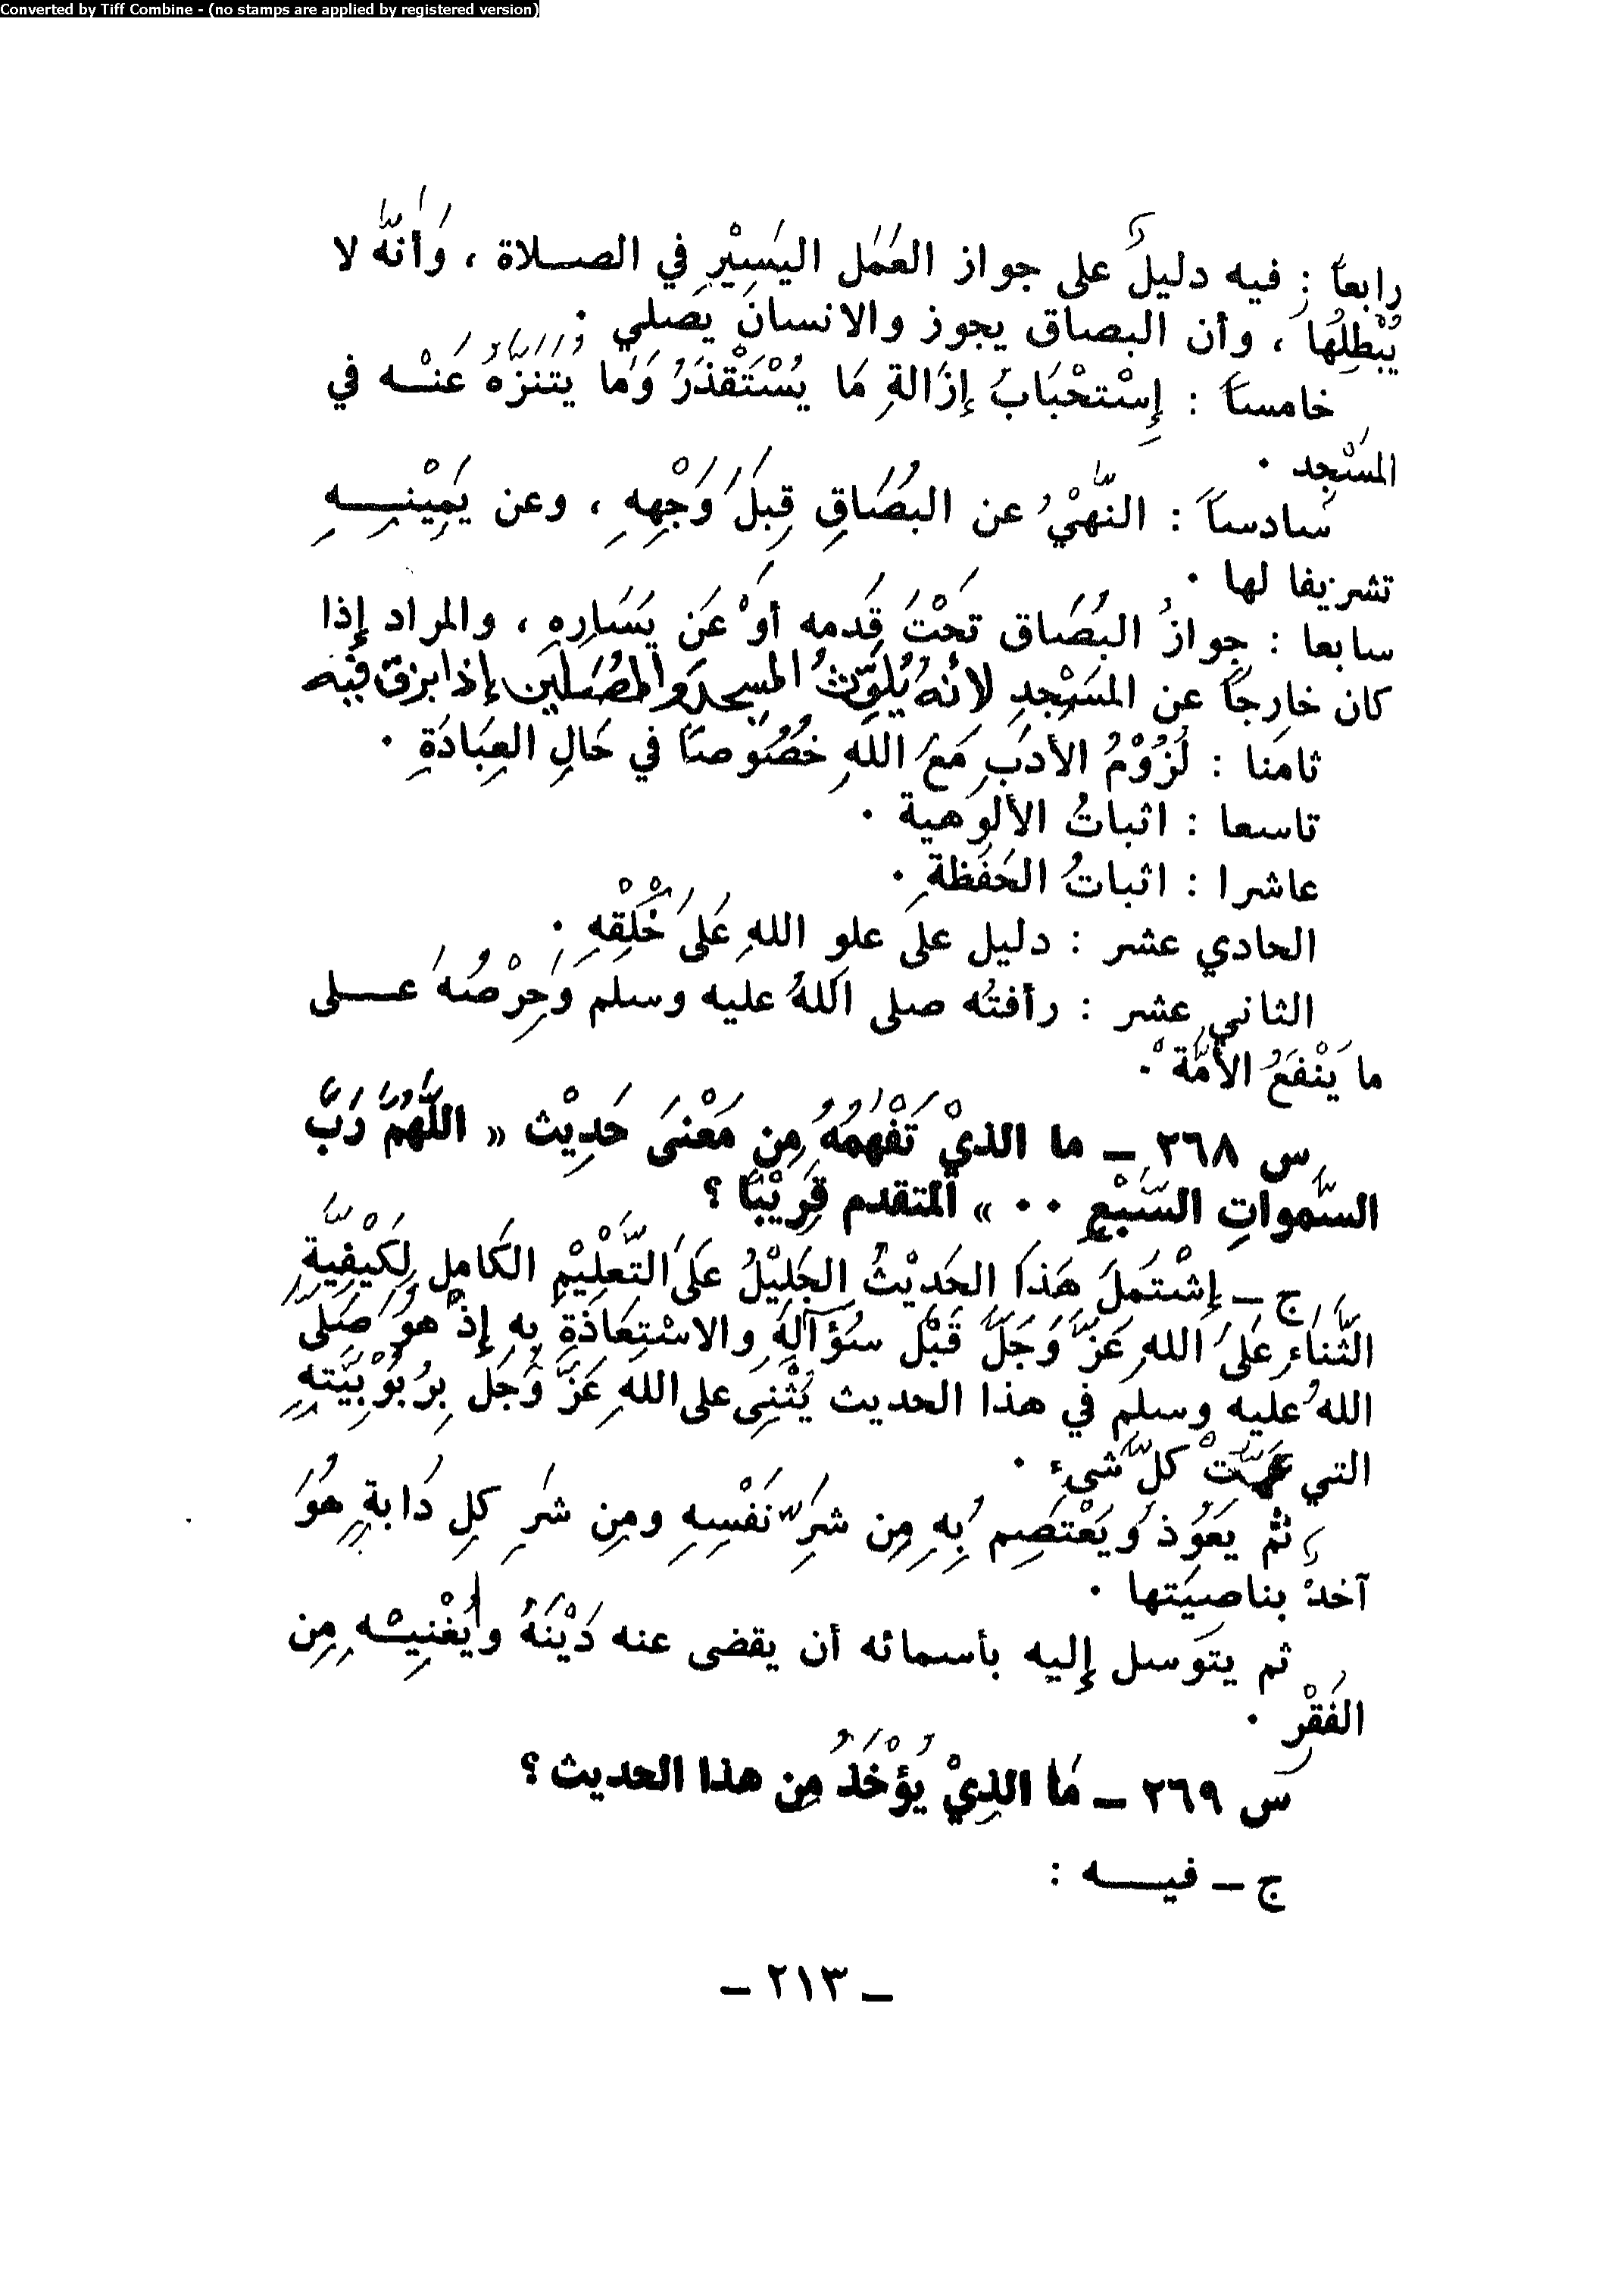 Converted by Tiff Combine - (no stamps are applied by registered version)
رابعاً : فيه دليلٌ على جواز العَمَل اليَسِيْرِ في الصـلاة ، وَأَنَّهُ لا
يُبْطِلُهَا ، وأن البصاق يجوز والانسانَ يُصَلي .
خامساً : إِسْتحْبَابُ إِزَالةِ مَا يُسْتَقْذَرُ وَمَا يُتَنَزَّهُ عَنْـه في
المسْجِد .
سَادساً : النَّهْيُ عن البُصَاقِ قِبَلَ وَجْهِهِ ، وعن يَمِيْنِـــهِ
تشريفا لها .
سابعا : جوازُ البُصَاق تَحْتَ قَدمه أوْ عَن يَسَارِهِ ، والمراد إِذا
كان خارِجاً عن المسْجِدِ لانهُ يُلوِّثُ المسجدَ والمُصَلين إذا بزق فيه
ثامنا : لُزُوْمُ الأَدَبِ مَعَ اللهِ خُصُوصاً في حَالِ العِبَادَةِ .
تاسعا : اثباتُ الأُلوهية .
عاشرا : اثباتُ الحَفَظةِ .
الحادي عشر : دليل على علوِ اللهِ عَلىَ خَلْقِهِ .
الثاني عشر : رأفتُه صلى اللهُ عليه وسلم وَحِرْصُهُ عـــلى
ما يَنْفَعُ الأمَّة .
س ٢٦٨ ـ ما الذيْ تَفْهَمُهُ مِن مَعْنىَ حَدِيْث « اللَّهُمَّ رَبَّ
السَّمواتِ السَّبْعِ ٠٠ » المتقدم قَرِيْبًا ؟
ج ـ إِشْتملَ هَذا الحَديْثُ الجَلِيْلُ عَلىَ التَّعْلِيْمِ الكَامِلِ لِكَيْفِيَّةِ
الثَّنَاءِ عَلىَ اللهِ عَزَّ وَجَلَّ قَبْلَ سُؤآلِهِ والاسْتِعَاذَةِ بِهِ إِذْ هُوَ صَلَّى
اللهُ عليه وسلم في هذا الحديث يُثْنِى على اللهِ عَزَّ وَجَل بِرُبُوْبِيَّتِهِ
التي عَمَّتْ كلَّ شىءٍ .
ثُم يَعَوُذُ وَيَعْتَصِم بُهِ مِن شَرِّ نَفْسِهِ ومِن شَرِ كلِ دَابةٍ هُوَ
آخذٌ بناصِيَتها .
ثم يتوسل إِليه بأسمائه أن يقضى عنه دَيْنَهُ وأَيُغْنِيْـه مِن
الفَقْرِ .
س ٢٦٩ ـ مَا الذِيْ يُؤْخَذُ مِن هذا الحديث ؟
ج ـ فيـــه :
ـ ٢١٣ ـ